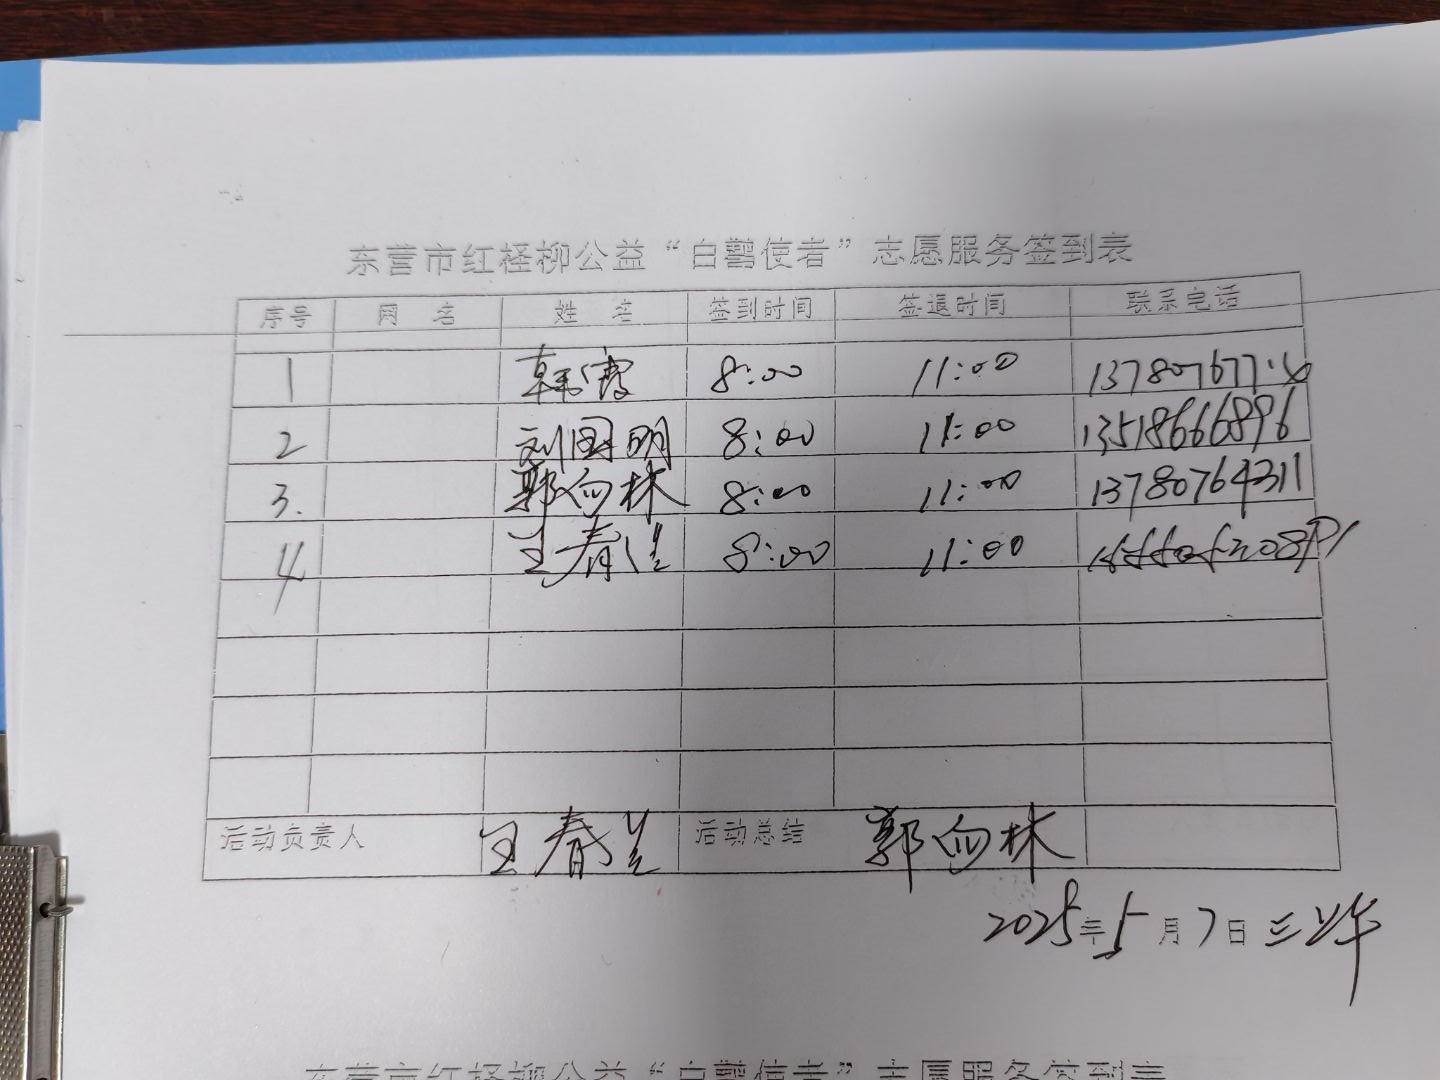 东营市红柽柳公益“白鹳使者”志愿服务签到表
序号 网 名 姓 名 签到时间 签退时间 联系电话
1 韩霞 8:00 11:00
2 刘国明 8:00 11:00 13518666896
3. 郭向林 8:00 11:00 13780764311
4 王春兰 8:00 11:00
活动负责人 王春兰 活动总结 郭向林
2025年5月7日 三 上午
东营市红柽柳公益“白鹳使者”志愿服务签到表